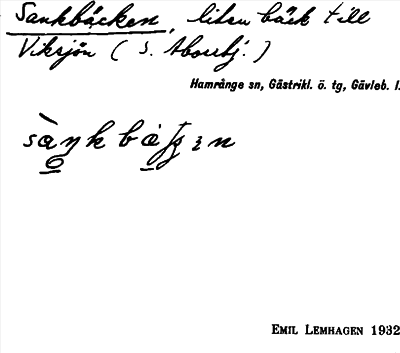 Sankbäcken, liten bäck till
Viksjön ( S. Åbortj. )
Hamrånge sn, Gästrikl. ö. tg, Gävleb. l.
EMIL LEMHAGEN 1932